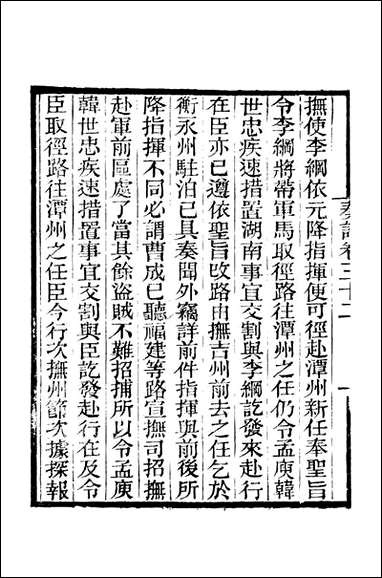 撫使李綱依元降指揮便可徑赴潭州新任奉聖旨
令李綱將帶軍馬取徑路往潭州之任仍令孟庾韓
世忠疾速措置湖南事宜交割與李綱訖發來赴行
在臣亦已遵依聖旨改路由撫吉州前去之任乞於
衡永州駐泊已具奏聞外竊詳前件指揮與前後所
降指揮不同必謂曹成已聽福建等路宣撫司招撫
赴軍前區處了當其餘盜賊不難招捕所以令孟庾
韓世忠疾速措置事宜交割與臣訖發赴行在及令
臣取徑路往潭州之任臣今行次撫州節次據探報